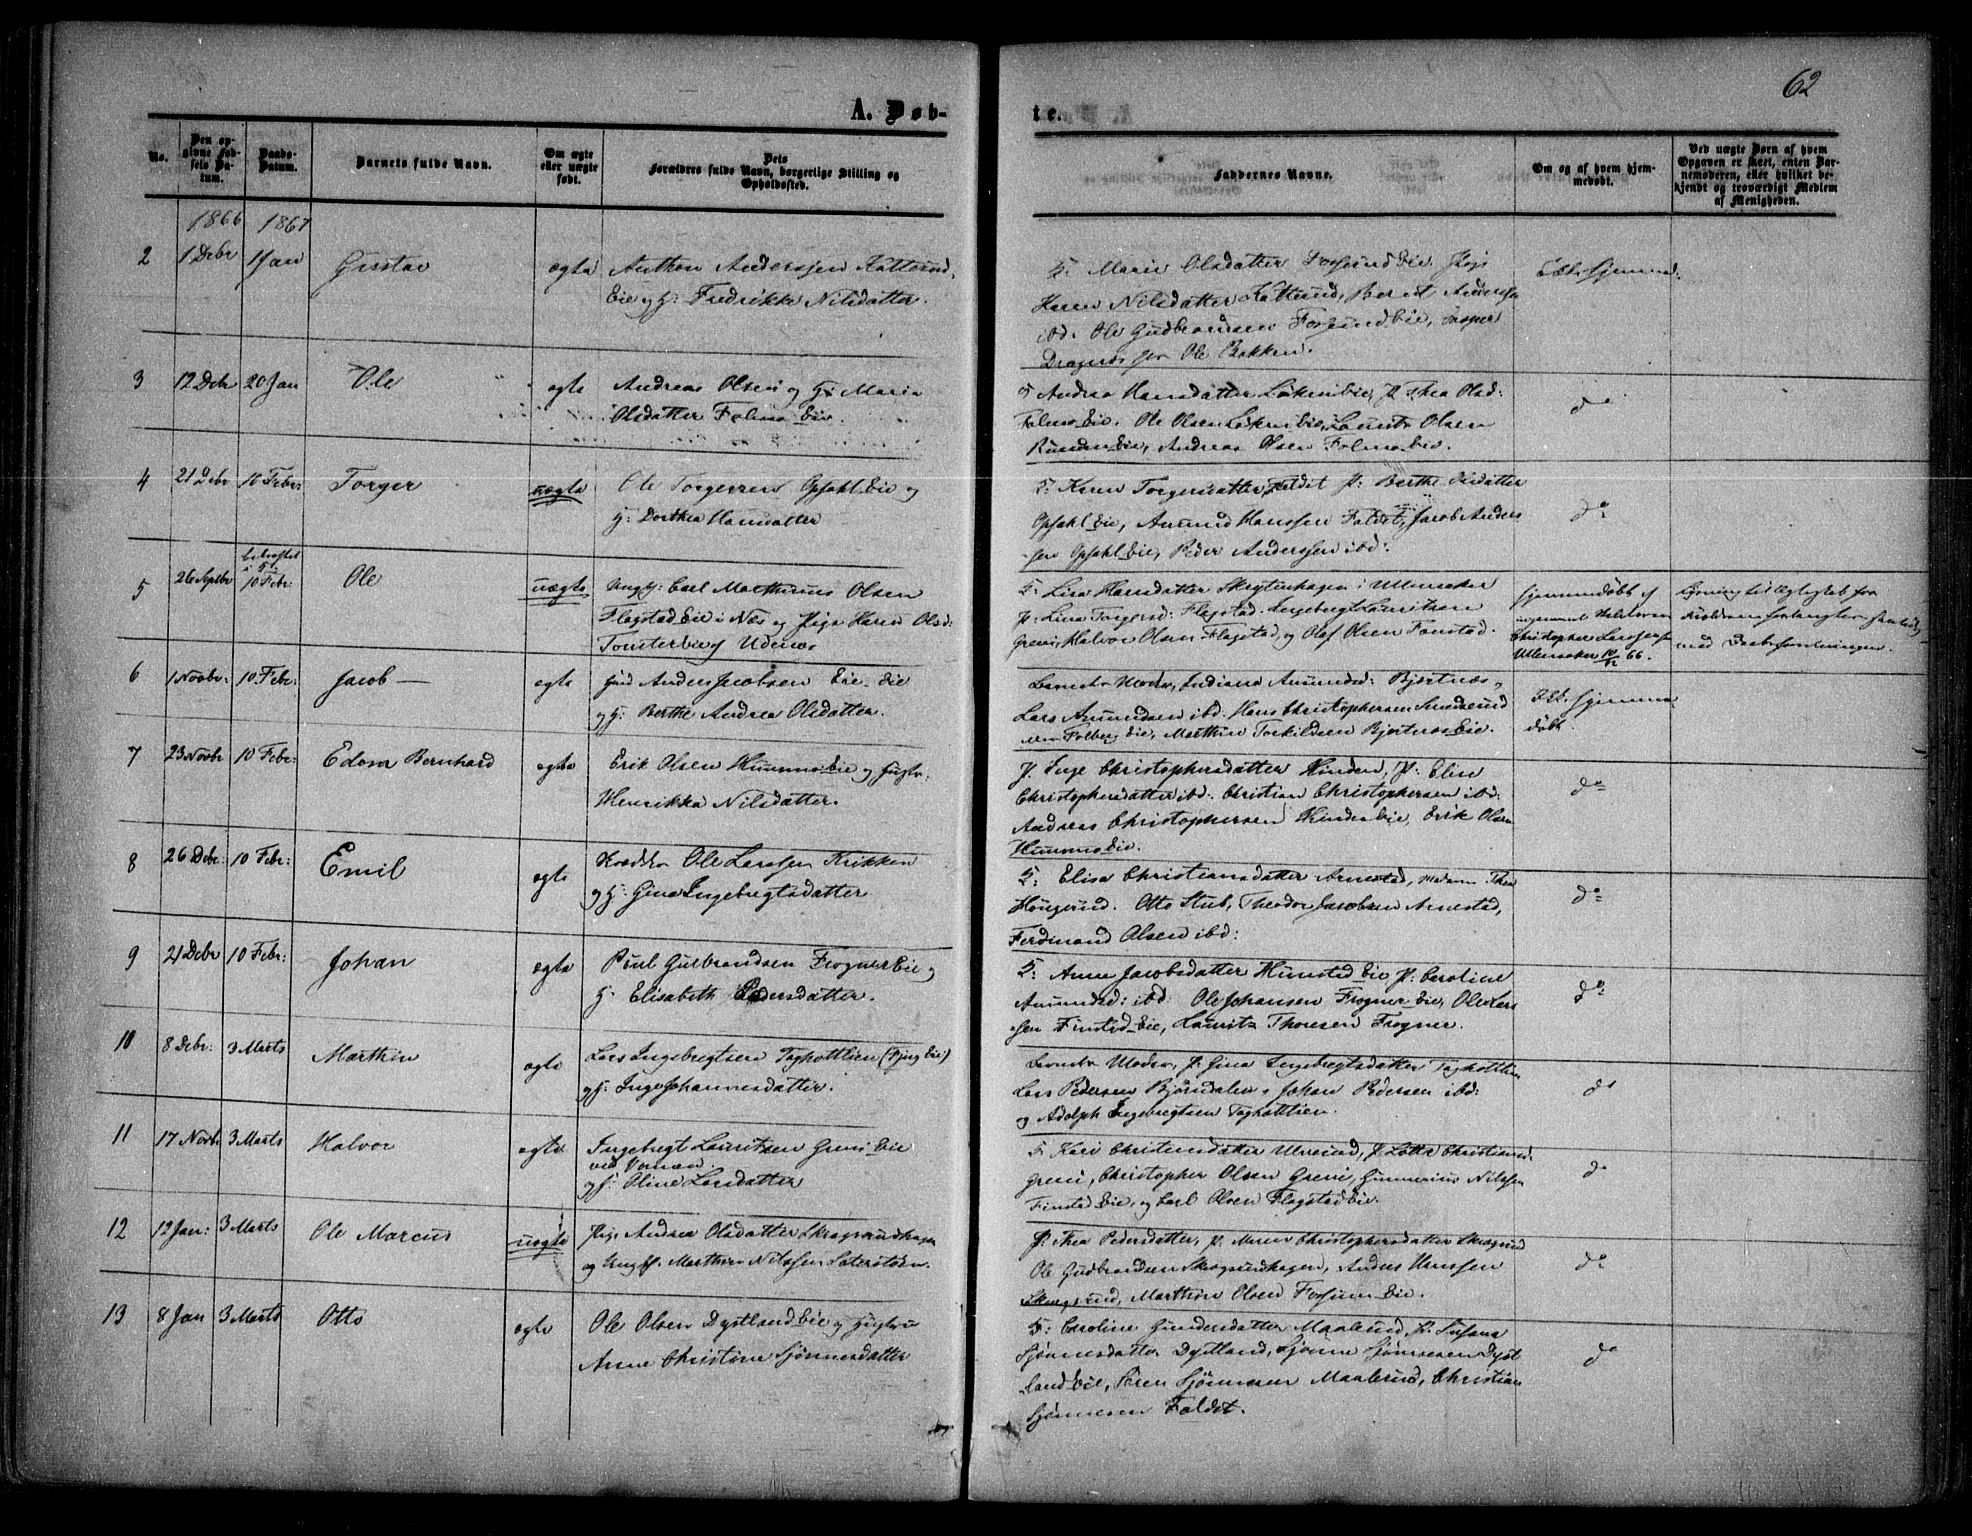 62
A. Døb-
te.
No.
Den opgivne Fødsels Datum.
Daabs-Datum.
Barnets fulde Navn.
Om ægte eller uægte født.
Dets Forældres fulde Navn, borgerlige Stilling og Opholdssted.
Faddernes Navne.
Om og af hvem hjemmedøbt.
Ved uægte Børn af hvem Opgaven er skeet, enten Barnemoderen, eller hvilket bekjendt og troværdigt Medlem af Menigheden.
1866 1867
2 1 Debr 1 Jan Gustav ægte Anthon Anderssen Kattrud
Eie og H: Fredrikke Nilsdatter.
G: Marie Olsdatter Fossund Eie, Pige
Karen Nilsdatter Kattrud, Berit Anders
ibd. Ole Gudbrandsen Fossund Eie, Casper
Ole Bakken.
3 12 Debr 20 Jan Ole ægte Andreas Olsen og H: Maria
Olsdatter Folmo Eie.
G Andrea Hansdatter Løken Eie, P. Thea Olsd:
Folmo Eie. Ole Olsen Løken Eie, Laurits Olsen
Eie, Andreas Olsen Folmo Eie.
do
4 21 Debr 10 Febr: Torger uægte Ole Torgersen Opsahl Eie og
H: Dorthea Hansdatter
G: Karen Torgersdatter Faldet P: Berthe Olsdatter
Opsahl Eie, Amund Hanssen Faldet, Jacob Anders
sen Opsahl Eie, Peder Anderssen ibd:
do
5 26 Septbr bekræftet i K: 10 Febr: Ole uægte Ungk: Carl Marthinus Olsen
Flagstad Eie i Næs og Pige Karen Olsd:
Udenæs
G: Lisa Hansdatter i Ullensaker
P: Lina Torgersd: Flagstad. Ingebregt Lauritsen
Greni, Halvor Olsen Flagstad, og Olaf Olsen Fonstad.
Hjemmedøbt af
Christopher Larssen
Ullensaker 10/12 66.
med Daabsforretningen.
6 1 Novbr: 10 Febr: Jacob — ægte Anders Jacobsen Eie
og H: Berthe Andrea Olsdatter.
Barnets Moder, Indiana Amundsd: Bjertnæs
Lars Amundsen ibd. Hans Christophersen
Folberg Eie, Marthin Torkildsen Bjertnæs Eie.
døbt
7 23 Novbr 10 Febr: Edon Bernhard ægte Erik Olsen Hummo Eie og Hustr:
Henrikka Nilsdatter.
P. Inge Christophersdatter Hinden, P: Elise
Christophersdatter ibd: Christian Christophersen ibd:
Andreas Christophersen Hinden Eie, Erik Olsen
Hummo Eie.
do
8 26 Debr: 10 Febr: Emil ægte Ole Larssen Krikken
og H: Gina Ingebregtsdatter
G: Elisa Christiansdatter Arnestad, Madam Thea
Haugerud. Otto Stub, Theodor Jacobsen Arnestad,
Ferdinand Olsen ibd:
do
9 21 Debr 10 Febr: Johan ægte Poul Gulbrandsen Frogner Eie og
H: Elisabeth Pedersdatter.
G: Anne Jacobsdatter Hunstad Eie P: Caroline
Amundsd: ibd: Ole Johansen Frogner Eie, Ole Lars
sen Finstad Eie, Laurits Thoresen Frogner.
do
10 8 Debr: 3 Marts Marthin ægte Lars Ingebregtsen Taghottlien (Fjug Eie)
og H: Inge Johannesdatter.
Barnets Moder, P: Gina Ingebregtsdatter Taghottlien
Lars Pedersen Bjørndalen, Johan Pedersen ibd:
og Adolph Ingebregtsen Taghottlien.
do
11 17 Novbr 3 Marts Halvor ægte Ingebregt Lauritsen Greni Eie
ved Vomen.
og H: Oline Larsdatter
G Kari Christiansdatter Ulverud, P. Lotta Christiansd:
Greni, Christopher Olsen Greni, Gunnerius Nilssen
Finstad Eie, og Carl Olsen Flagstad Eie.
do
12 12 Jan: 3 Marts Ole Marcus uægte Pige Andrea Olsdatter Skogrundhagen
og Ungk. Marthin Nilssen
P: Thea Pedersdatter, P: Maren Christophersdatter Skogrud
Ole Gudbrandsen Skogrundhagen, Anders Hanssen
Skogrud, Marthin Olsen Fossum Eie.
do
13 8 Jan 3 Marts Otto ægte Ole Olsen Dystland Eie og Hustru
Anne Christine Sjønnesdatter
G: Caroline Gundersdatter Maalerud, P. Susana
Sjønnesdatter Dystland, Sjønne Sjønnesen Dyst
land Eie, Søren Sjønnesen Maalerud, Christian
Sjønnesen Faldet.
do